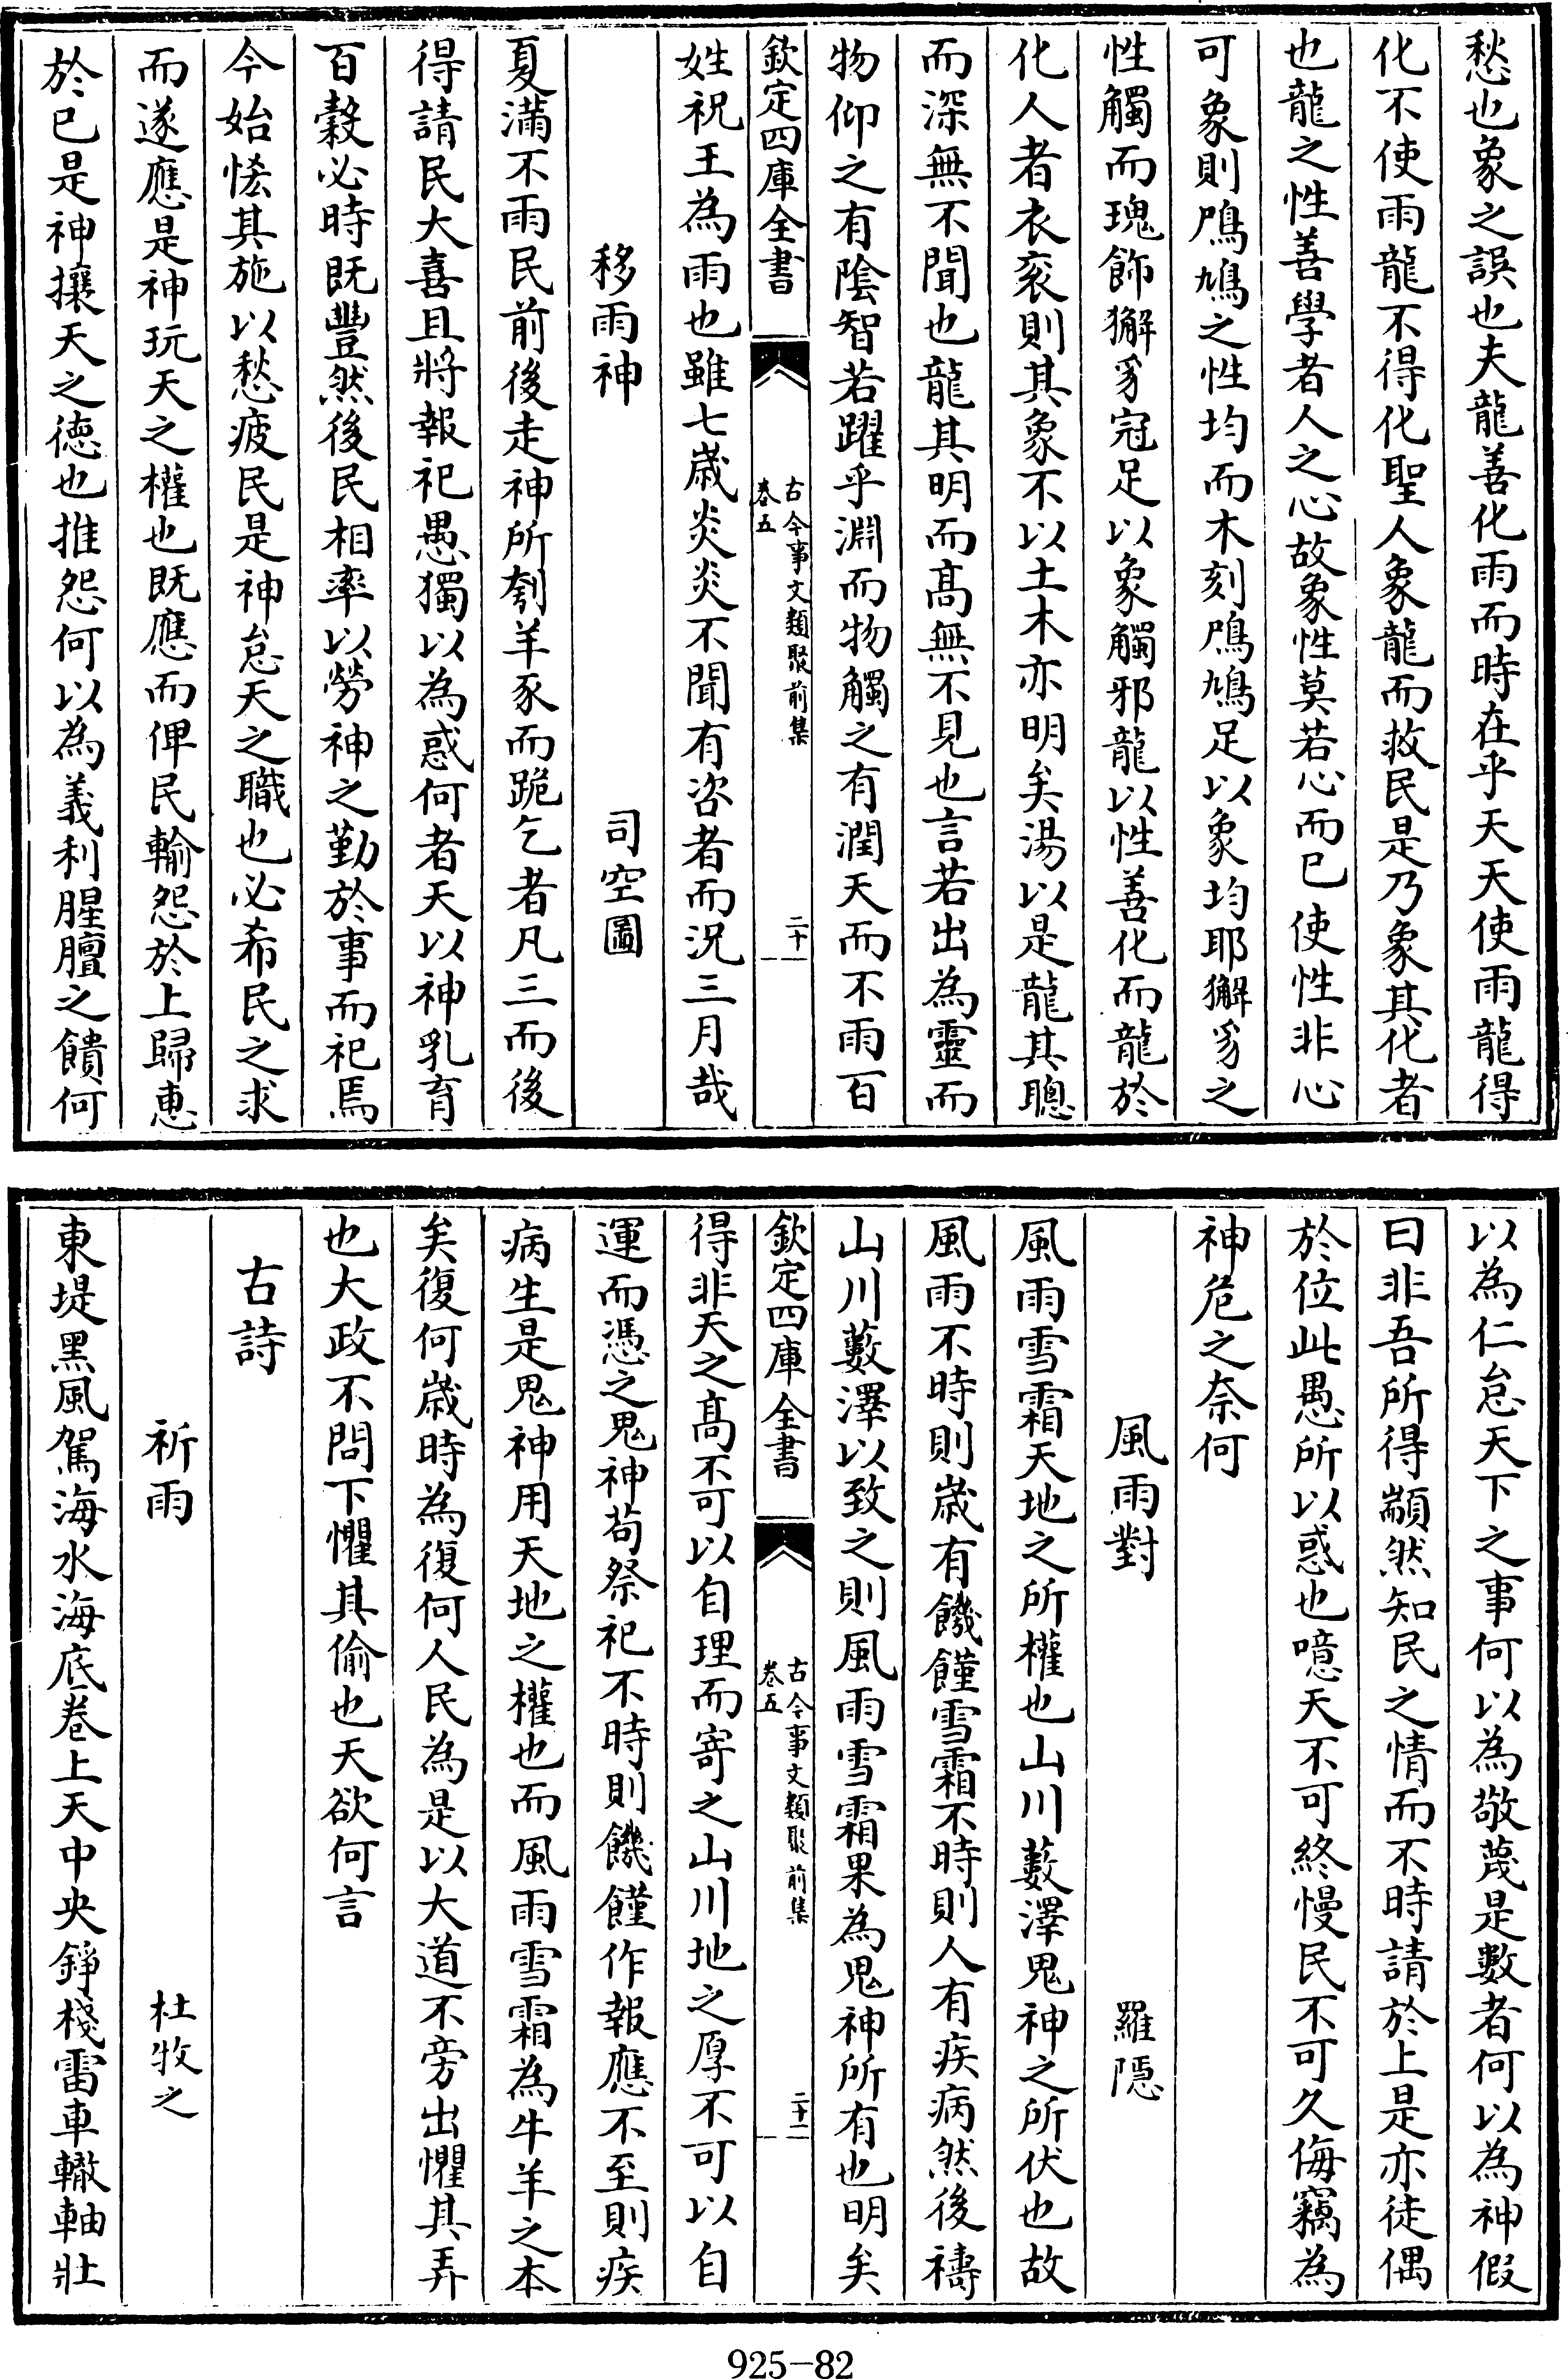 愁也象之誤也夫龍善化雨而時在乎天天使雨龍得
化不使雨龍不得化聖人象龍而救民是乃象其化者
也龍之性善學者人之心故象性莫若心而已使性非心
可象則鳲鳩之性均而木刻鳲鳩足以象均耶獬豸之
性觸而瑰飾獬豸冠足以象觸邪龍以性善化而龍於
化人者衣衮則其象不以土木亦明矣湯以是龍其聰
而深無不聞也龍其明而髙無不見也言若出為靈而
物仰之有陰智若躍乎淵而物觸之有潤天而不雨百
欽定四庫全書
古今事文類聚前集
卷五
二十
姓祝王為雨也雖七歳炎炎不聞有咨者而況三月哉
移雨神
司空圖
夏滿不雨民前後走神所刳羊豕而跪乞者凡三而後
得請民大喜且將報祀愚獨以為惑何者天以神乳育
百穀必時既豐然後民相率以勞神之勤於事而祀焉
今始恡其施以愁疲民是神怠天之職也必希民之求
而遂應是神玩天之權也既應而俾民輸怨於上歸惠
於已是神攘天之徳也推怨何以為義利腥膻之饋何
以為仁怠天下之事何以為敬蔑是數者何以為神假
曰非吾所得顓然知民之情而不時請於上是亦徒偶
於位此愚所以惑也噫天不可終慢民不可久侮竊為
神危之奈何
風雨對
羅隱
風雨雪霜天地之所權也山川藪澤鬼神之所伏也故
風雨不時則歳有饑饉雪霜不時則人有疾病然後禱
山川藪澤以致之則風雨雪霜果為鬼神所有也明矣
欽定四庫全書
古今事文類聚前集
卷五
二十一
得非天之髙不可以自理而寄之山川地之厚不可以自
運而憑之鬼神茍祭祀不時則饑饉作報應不至則疾
病生是鬼神用天地之權也而風雨雪霜為牛羊之本
矣復何歳時為復何人民為是以大道不旁出懼其弄
也大政不問下懼其偷也天欲何言
古詩
祈雨
杜牧之
東堤黑風駕海水海底卷上天中央錚棧雷車轍軸壯
925-82